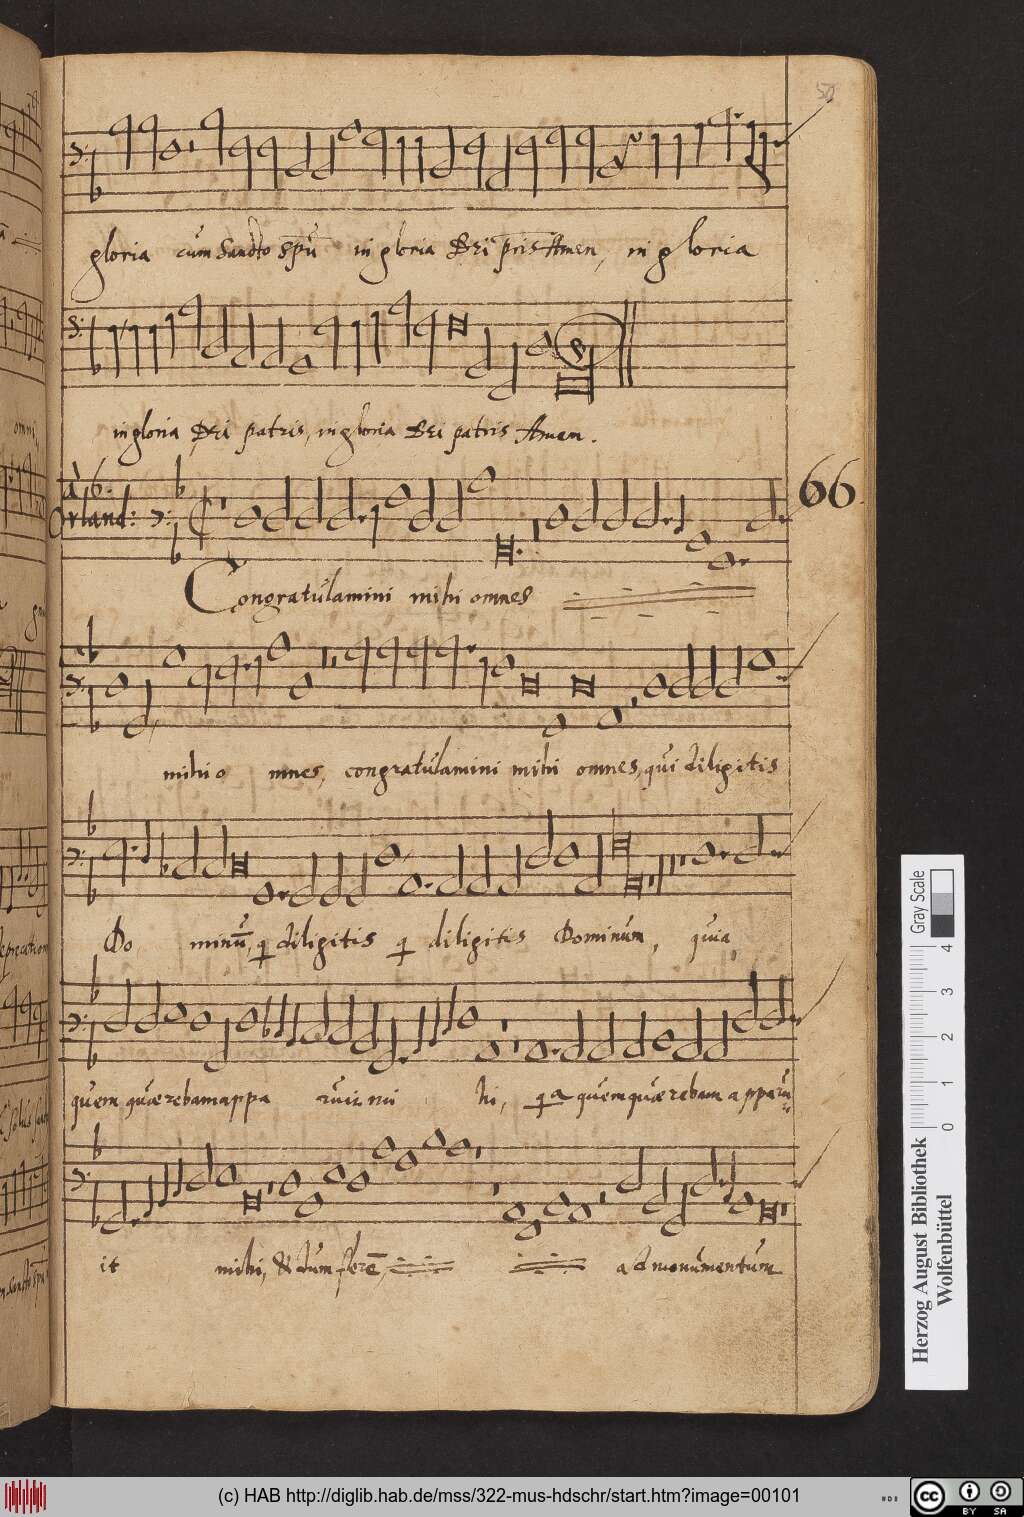 gloria cum Sancto Spũ in gloria Dei pris Amen, in gloria
in gloria Dei patris, in gloria Dei patris Amen.
à 6.
Orland:
66
Congratulamini mihi omnes
mihi o mnes, congratulamini mihi omnes, qui diligitis
Do minũ, q diligitis q diligitis Dominum, quia
quem quærebam appa ruit mi hi, qa quem quærebam apparu
it mihi, & dum flerē, ad monumentum
Gray Scale
0 1 2 3 4
Herzog August Bibliothek
Wolfenbüttel
(c) HAB http://diglib.hab.de/mss/322-mus-hdschr/start.htm?image=00101
cc BY SA